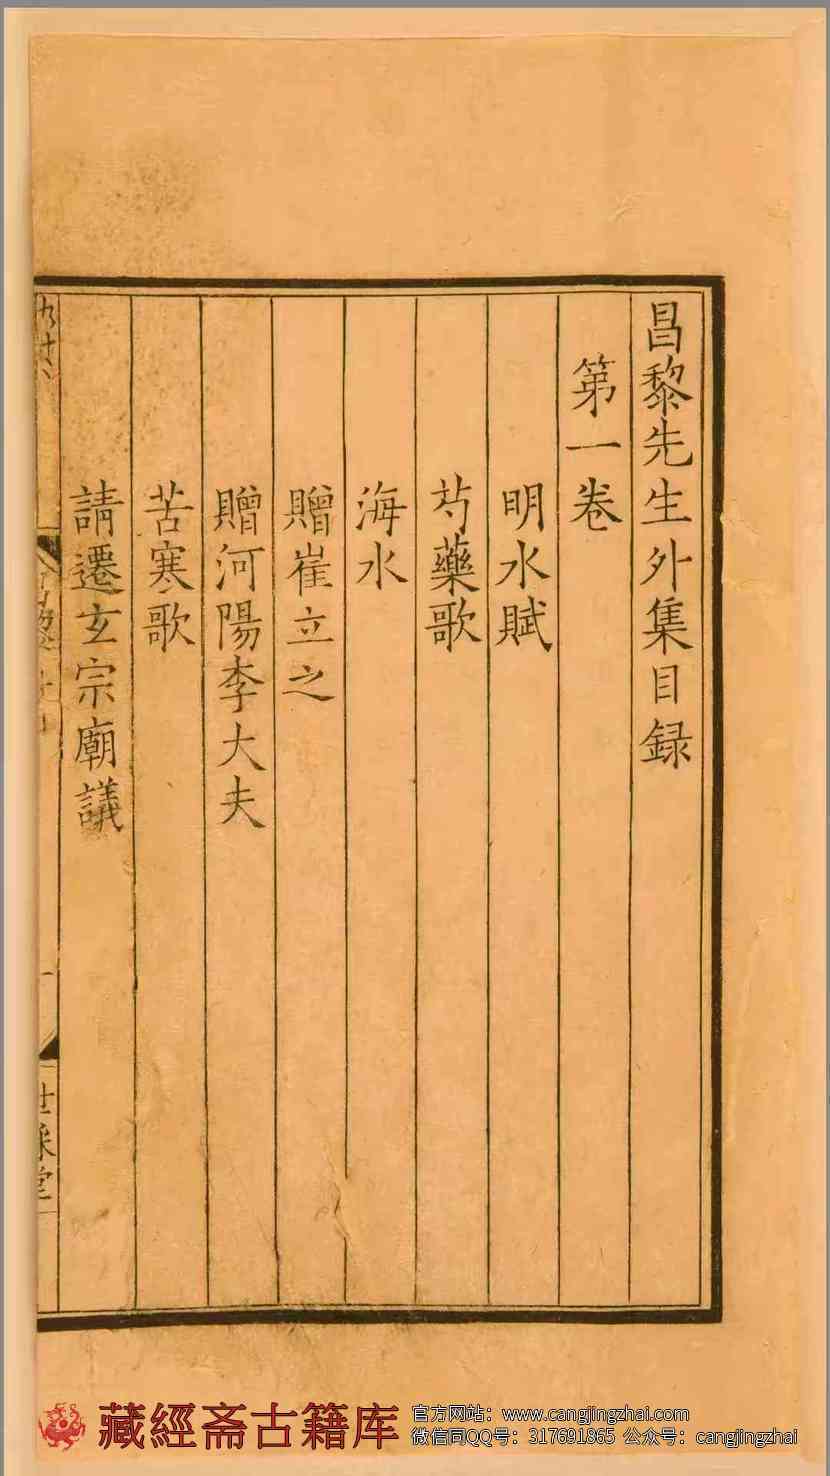 昌黎先生外集目録
第一卷
明水賦
芍藥歌
海水
贈崔立之
贈河陽李大夫
苦寒歌
請遷玄宗廟議
世綵堂
藏經斋古籍库
官方网站：www.cangjingzhai.com
微信同QQ号：317691865 公众号：cangjingzhai